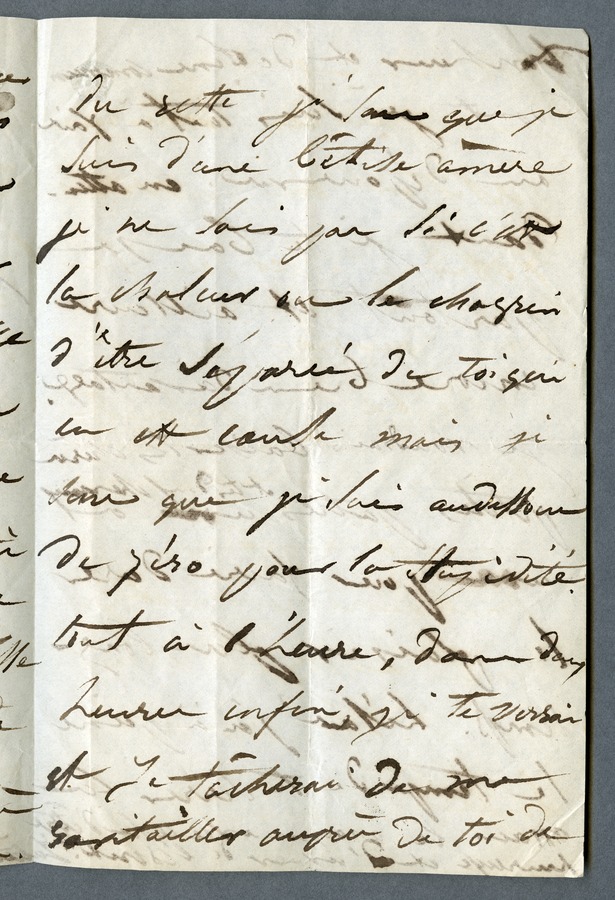 Du reste je sens que je
suis d'une bêtise amère
je ne sais pas si c'est
la chaleur ou le chagrin
d'être séparée de toi qui
en est cause mais je
sens que je suis audessous
de zéro pour la stupidité.
tout à l'heure, dans deux
heures enfin je te verrai
et je tâcherai de me
ravitailler auprès de toi de